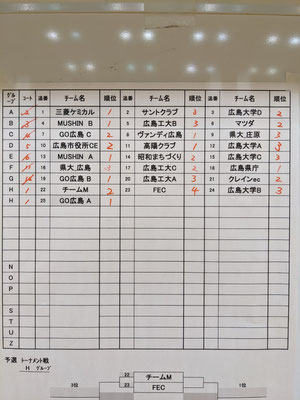 グループ コート 通番 チーム名 順位 通番 チーム名 順位 通番 チーム名 順位
A 1 三菱ケミカル 1 2 サントクラブ 3 3 広島大学D 2
B 4 MUSHIN B 1 5 広島工大B 3 6 マツダ 2
C 7 GO広島 C 2 8 ヴァンディ広島 1 9 県大_庄原 3
D 5 10 広島市役所CE 2 11 高陽クラブ 1 12 広島大学A 3
E 13 MUSHIN A 1 14 昭和まちづくり 2 15 広島大学C 3
F 16 県大_広島 3 17 広島工大C 2 18 広島県庁 1
G 19 GO広島 B 1 20 広島工大A 3 21 クレインec 2
H 1 22 チームM 2 23 FEC 4 24 広島大学B 3
H 1 25 GO広島 A 1
N
O
P
S
T
U
Z
予選 トーナメント戦
H グループ
22 チームM
23 FEC
3位 1位